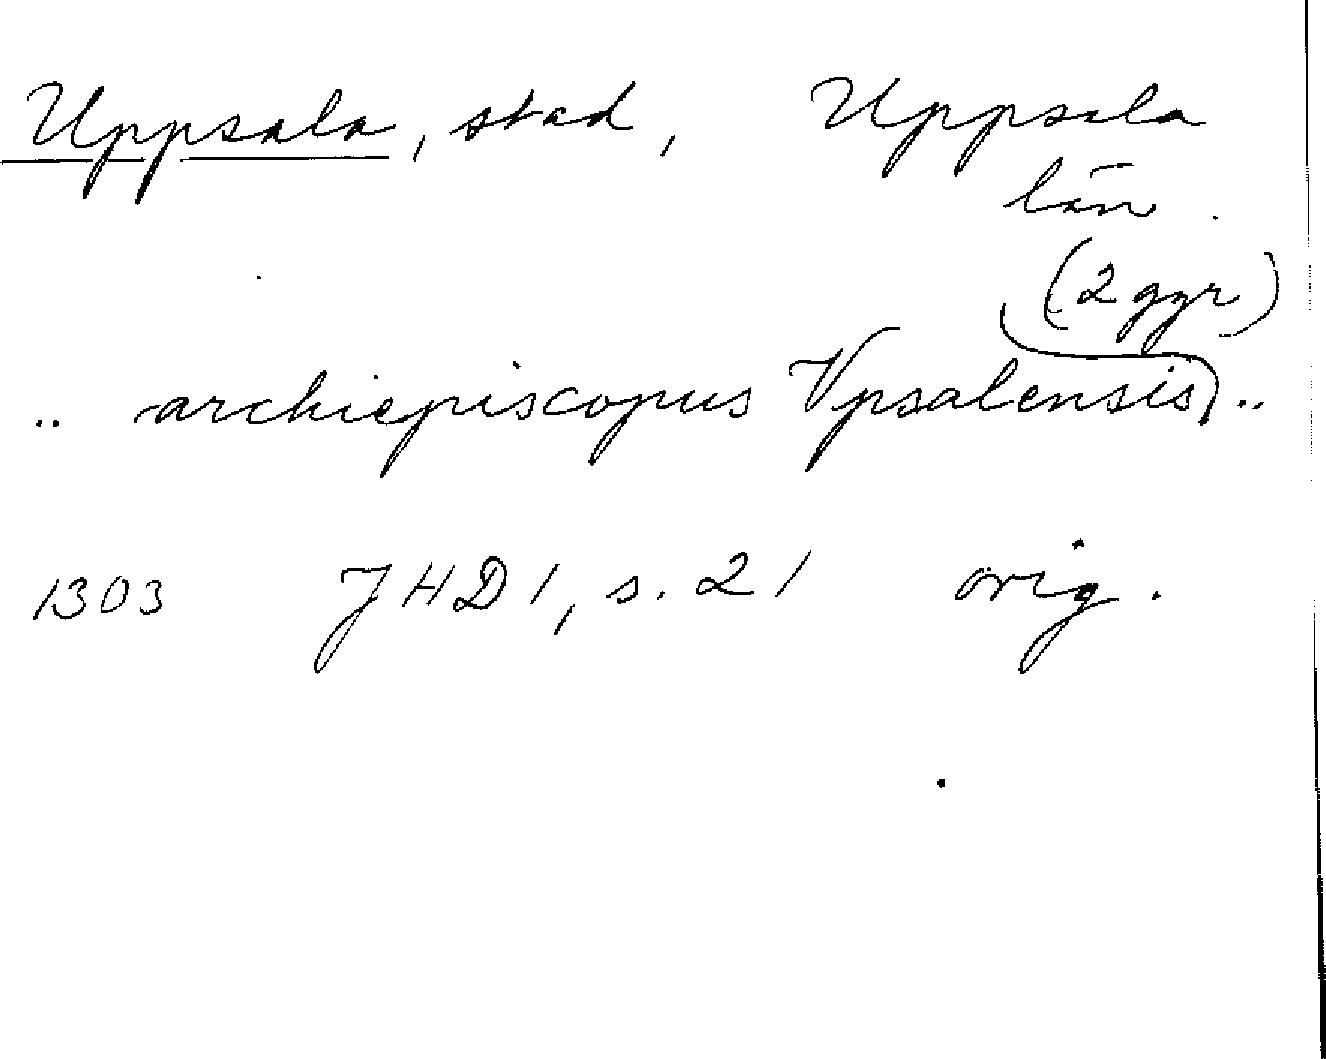 Uppsala, stad, Uppsala
län.
(2 ggr)
.. archiepiscopus Vpsalensis) ..
1303 JHD 1, s. 21 orig.